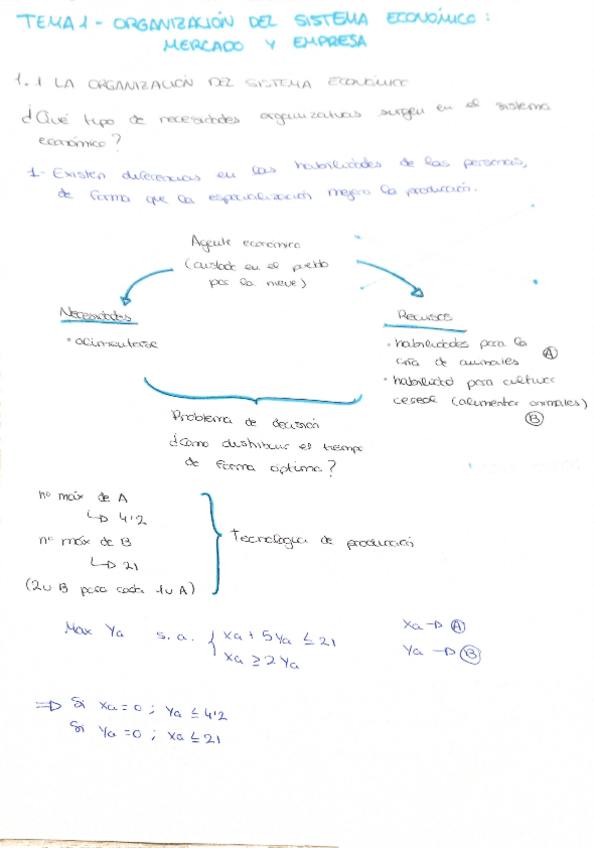 TEMA 1 - ORGANIZACIÓN DEL SISTEMA ECONÓMICO:
MERCADO Y EMPRESA
1.1 LA ORGANIZACIÓN DEL SISTEMA ECONÓMICO
¿Qué tipo de necesidades organizativas surgen en el sistema
económico?
1- Existen diferencias en las habilidades de las personas,
de forma que la especialización mejora la producción.
Agente económico
(aislado en el pueblo
por la nieve)
Necesidades
• alimentarse
Recursos
• habilidades para la
cría de animales Ⓐ
• habilidad para cultivar
cereal (alimentar animales)
Ⓑ
Problema de decisión
¿Cómo distribuir el tiempo
de forma óptima?
nº máx de A
↳ 4'2
nº máx de B
↳ 21
(2u B para cada 1u A)
Tecnología de producción
Max Ya s.a. { Xa + 5Ya ≤ 21
Xa ≥ 2Ya
Xa → Ⓐ
Ya → Ⓑ
⇒ Si Xa = 0 ; Ya ≤ 4'2
Si Ya = 0 ; Xa ≤ 21